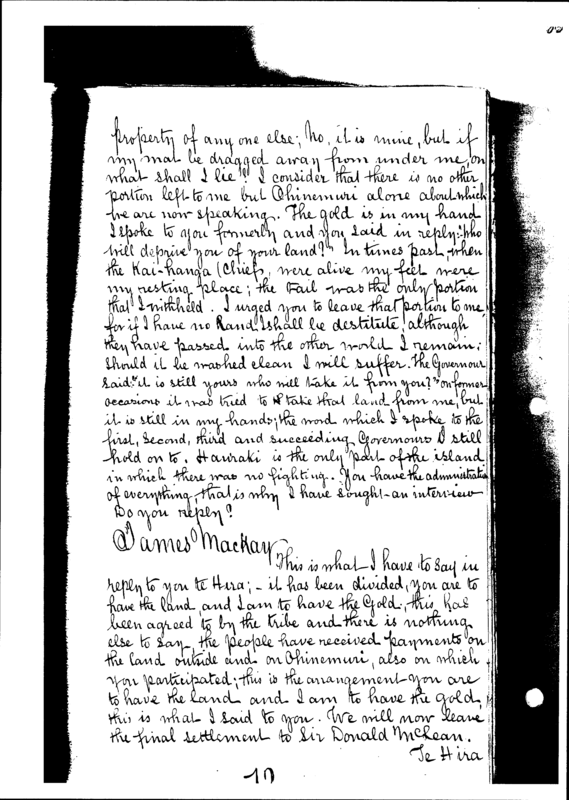 property of any one else; No, it is mine, but if
my mat be dragged away from under me, on
what shall I lie? I consider that there is no other
portion left to me but Ohinemuri alone about which
we are now speaking. The gold is in my hand
I spoke to you formerly and you said in reply "who
will deprive you of your land?" In times past, when
the Kai-hanga (Chiefs, were alive my feet were
my resting place; the Tail was the only portion
that I withheld. I urged you to leave that portion to me
for if I have no land I shall be destitute, although
they have passed into the other world I remain;
Should it be washed clean I will suffer. The Governour
said "it is still yours who will take it from you?" on former
occasions it was tried to take that land from me, but
it is still in my hands; the word which I spoke to the
first, second, third and succeeding Governours I still
hold on to. Hauraki is the only part of the island
in which there was no fighting. You have the administration
of everything, that is why I have sought an interview
Do you reply?
James Mackay
This is what I have to say in
reply to you te Hira; - it has been divided, you are to
have the land, and I am to have the Gold, this has
been agreed to by the tribe and there is nothing
else to say, the people have received payments on
the land outside and on Ohinemuri, also on which
you participated; this is the arrangement you are
to have the land and I am to have the gold,
this is what I said to you. We will now leave
the final settlement to Sir Donald McLean.
Te Hira
10